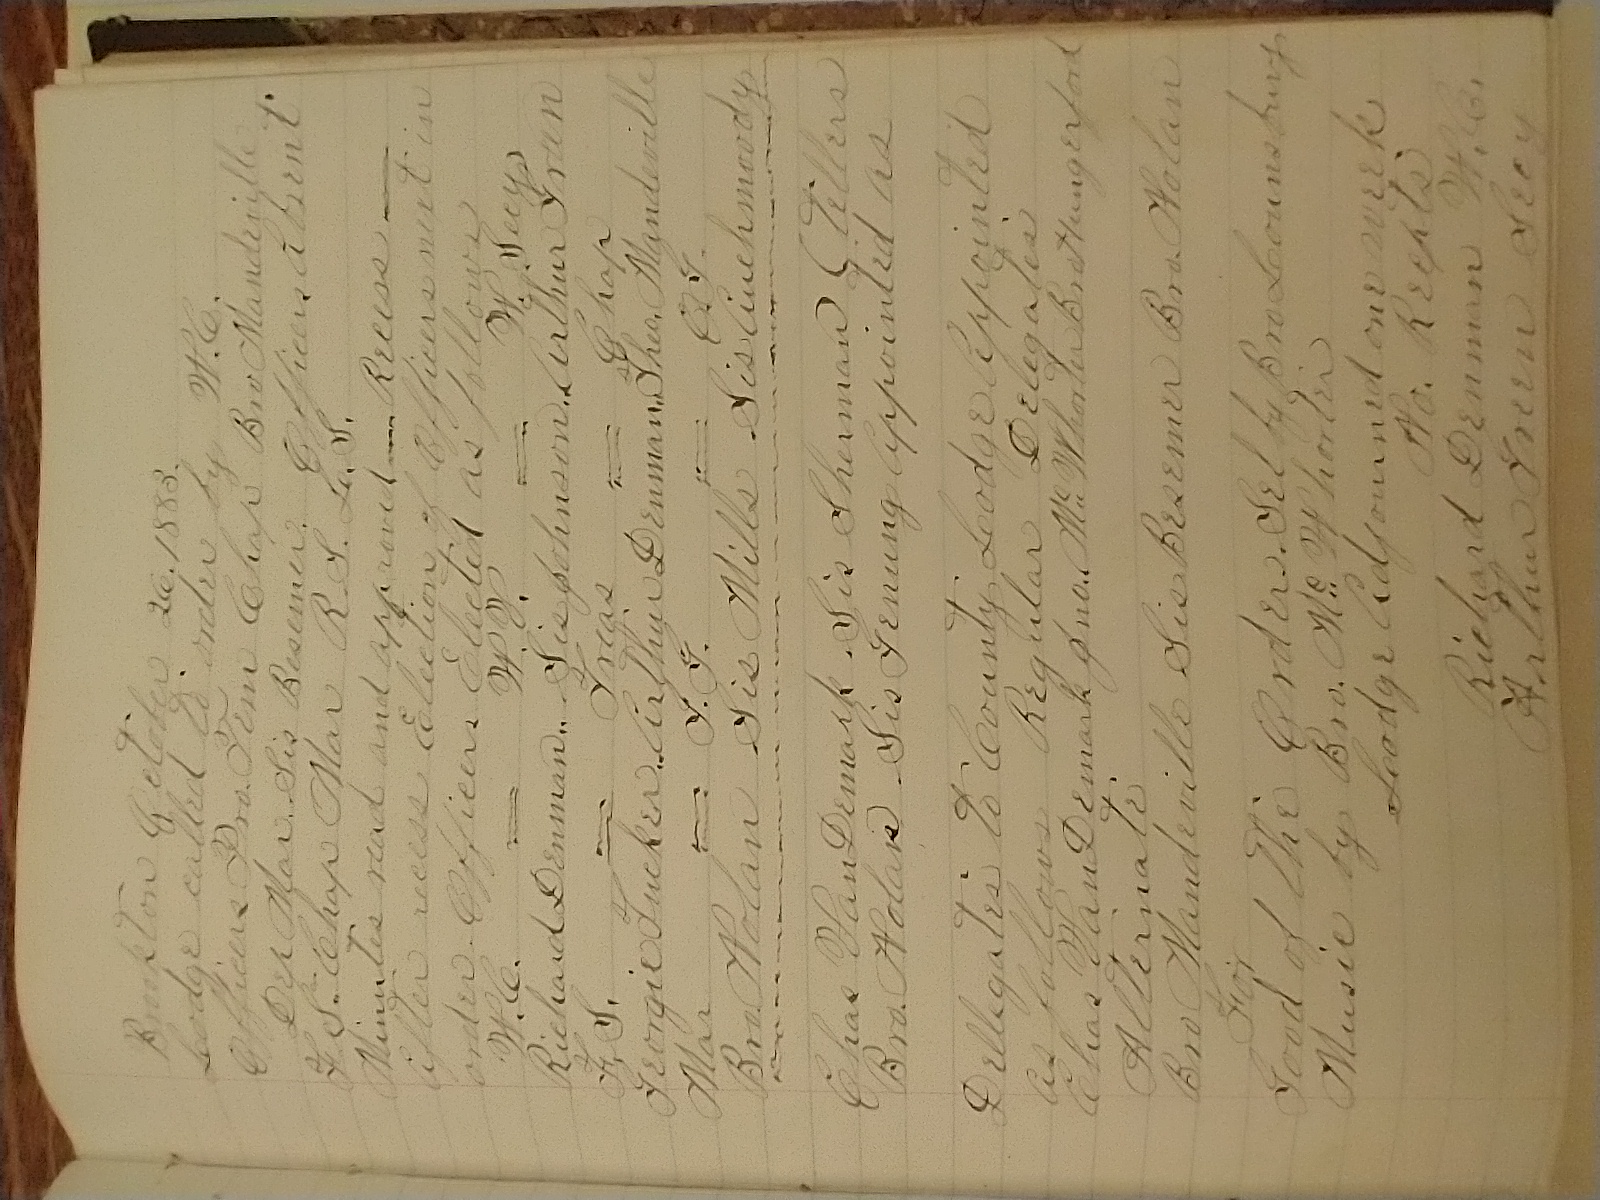 Brookton October 26. 1883.
Lodge called to order by W.C.
Officers Pro. Tem Chap Bro Mandeville
Dep Mar. Sis Besemer. Officers Absent
F.S. Chap Mar R.S. L.S.
Minutes read and approved — Recess —
After recess Election of Officers next in
order. Officers Elected as follows
W.C. = W.V. = W. Secy
Richard Denman.. Sis Johnson.. Arthur Green
F.S. = Treas = Chap
Georgie Tucker.. Arthur Denman.. Theo. Mandeville
Mar = I.G. = O.G.
Bro. Nolan Sis Mills Sis Auchmoody
Chas VanDemark. Sis Sherman (tellers
Bro. Nolan Sis Genung Appointed as
Dellegates to County Lodge Appointed
as follows Regular Delegates
Chas VanDemark Jno.. Mc Whorter Bro Hungerford
Alternate
Bro Mandeville Sis Besemer Bro. Nolan
For
Good of the Order. Sel by Bro Lounsbury
Music by Bro. Mc Whorter
Lodge Adjourned one week
No. Recpts
Richard Denman W.C.
Arthur Green Secy